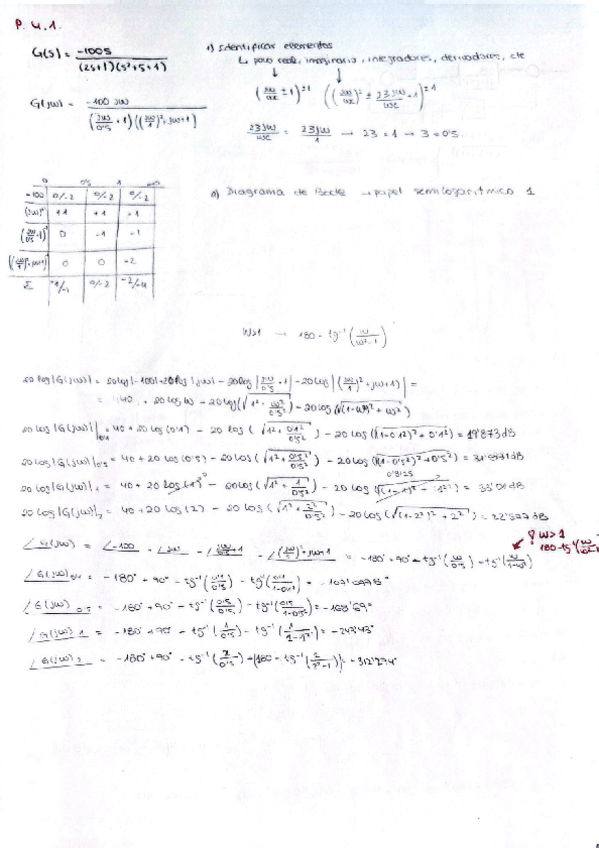 P. 4.1.
G(s) = -100s / (2s+1)(s²+s+1)
1) Identificar elementos
↳ polo real, imaginario, integradores, derivadores, etc
(jω/ωc ± 1)^±1 ((jω/ωc)² ± 2ζjω/ωc + 1)^±1
G(jω) = -100 jω / (jω/0'5 + 1)((jω/1)² + jω + 1)
2ζjω/ωc = 2ζjω/1 → 2ζ = 1 → ζ = 0'5
0 0'5 1 ∞
-100 0/-2 0/-2 0/-2
(jω)¹ +1 +1 +1
(jω/0'5 + 1)⁻¹ 0 -1 -1
((jω/1)² + jω + 1)⁻¹ 0 0 -2
Σ +1/-1 0/-2 -2/-4
2) Diagrama de Bode → papel semilogarítmico 1
ω>1 → 180 - tg⁻¹(ω/ω²-1)
20 log|G(jω)| = 20 log|-100| + 20 log|jω| - 20 log|jω/0'5 + 1| - 20 log|(jω/1)² + jω + 1| =
= 40 + 20 log ω - 20 log(√1² + ω²/0'5²) - 20 log(√(1-ω²)² + ω²)
20 log|G(jω)|0'1 = 40 + 20 log(0'1) - 20 log(√1² + 0'1²/0'5²) - 20 log(√(1-0'1²)² + 0'1²) = 19'873 dB
20 log|G(jω)|0'5 = 40 + 20 log(0'5) - 20 log(√1² + 0'5²/0'5²) - 20 log(√(1-0'5²)² + 0'5²) =
0'8125
20 log|G(jω)|1 = 40 + 20 log(1)⁰ - 20 log(√1² + 1/0'5²) - 20 log(√(1-1)² + 1²) = 33'01 dB
20 log|G(jω)|2 = 40 + 20 log(2) - 20 log(√1² + 2²/0'5²) - 20 log(√(1-2²)² + 2²) =
∠G(jω) = ∠-100 + ∠jω - ∠jω/0'5+1 - ∠(jω/1)²+jω+1 = -180° + 90° - tg⁻¹(ω/0'5) - tg⁻¹(ω/1-ω²)
! ω>1
180-tg⁻¹(ω/ω²-1)
∠G(jω)0'1 = -180° + 90° - tg⁻¹(0'1/0'5) - tg⁻¹(0'1/1-0'1²) =
∠G(jω)0'5 = -180° + 90° - tg⁻¹(0'5/0'5) - tg⁻¹(0'5/1-0'5²) = -168'69°
∠G(jω)1 = -180° + 90° - tg⁻¹(1/0'5) - tg⁻¹(1/1-1²) = -243'43°
∠G(jω)2 = -180° + 90° - tg⁻¹(2/0'5) - (180 - tg⁻¹(2/2²-1)) =